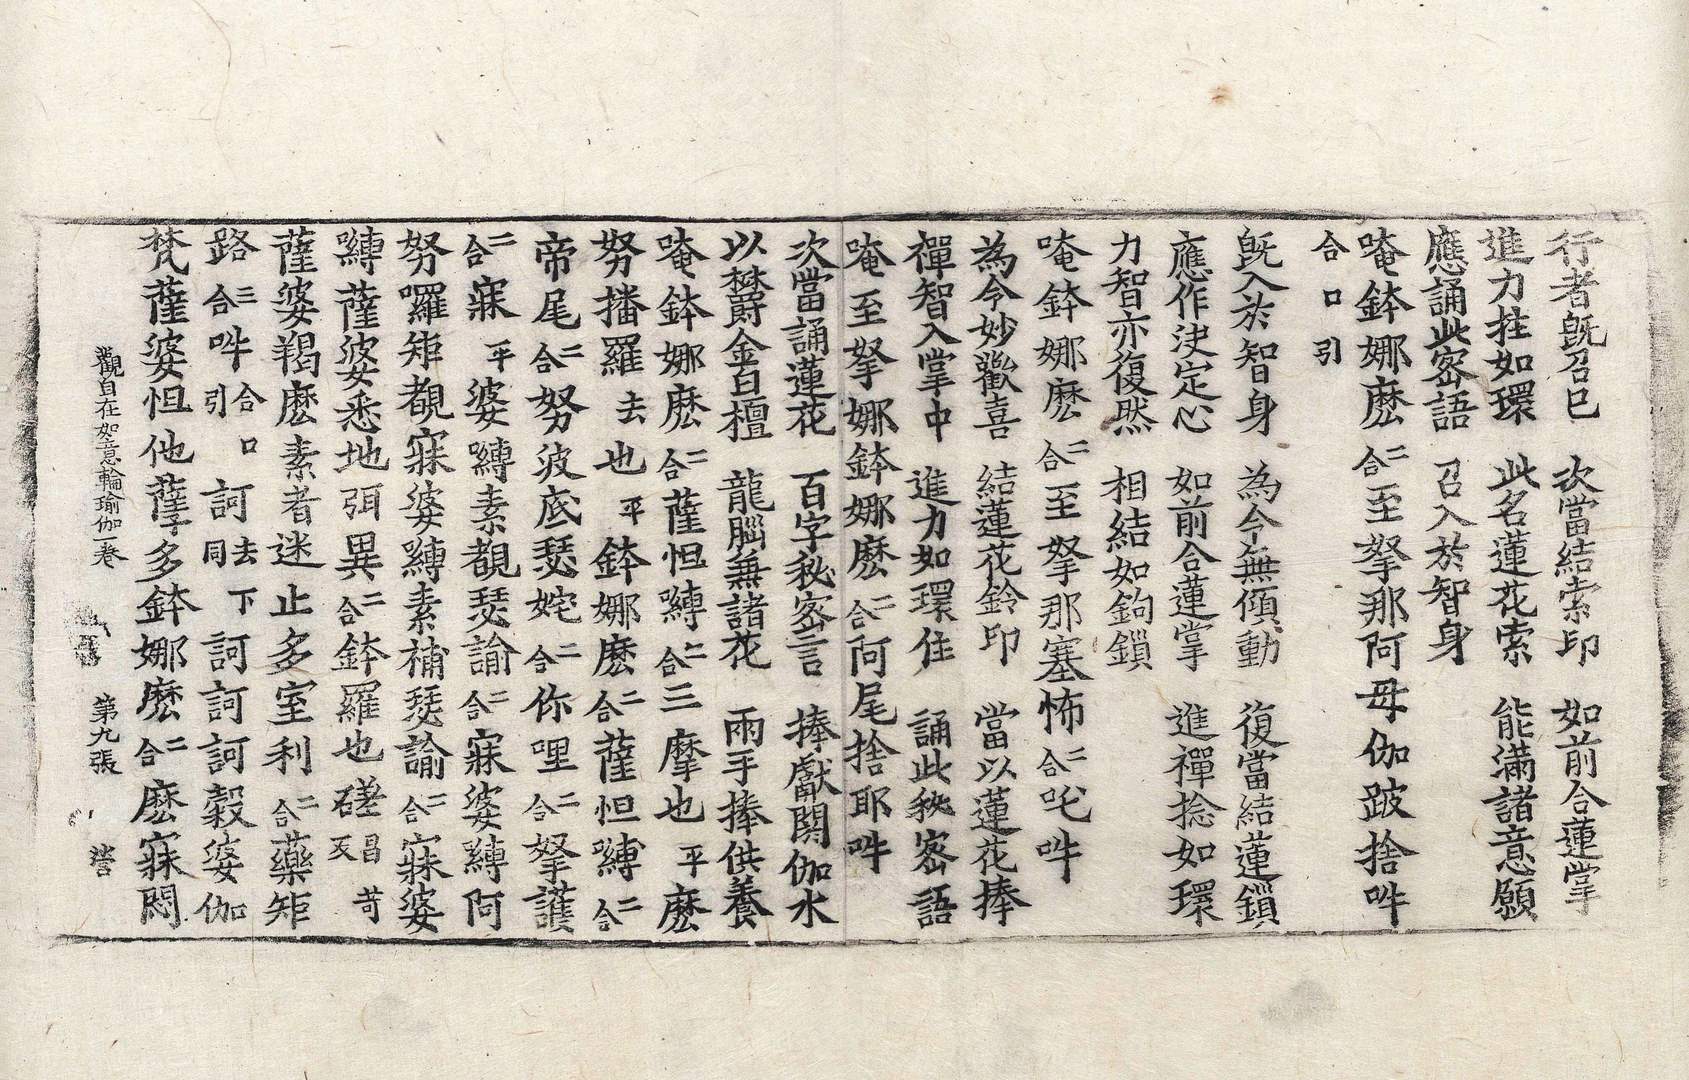 行者旣召已　次當結索印　如前合蓮掌
進力拄如環　此名蓮花索　能滿諸意願
應誦此密語　召入於智身
唵鉢娜麽二合至拏那阿母伽跛捨吽
合口引
旣入於智身　為令無傾動　復當結蓮鎖
應作決定心　如前合蓮掌　進禪捻如環
力智亦復然　相結如鉤鎖
唵鉢娜麽二合至拏那塞怖二合吒吽
為令妙歡喜　結蓮花鈴印　當以蓮花捧
禪智入掌中　進力如環住　誦此秘密語
唵至拏娜鉢娜麽二合阿尾捨耶吽
次當誦蓮花　百字秘密言　捧獻閼伽水
以欝金白檀　龍腦兼諸花　兩手捧供養
唵鉢娜麽二合薩怛嚩二合三摩也平麽
努播羅去也平鉢娜麽二合薩怛嚩二合
帝尾二合努波底瑟姹二合你哩二合拏護
二合寐平婆嚩素覩瑟諭二合寐婆嚩阿
努囉矩覩寐婆嚩素補瑟諭二合寐婆
嚩薩婆悉地弭異二合鉢羅也磋昌可反
薩婆羯麽素者迷止多室利二合藥矩
路三合吽合口引訶去下同訶訶訶穀婆伽
梵薩婆怛他孽多鉢娜麽二合麽寐悶
觀自在如意輪瑜伽一卷　第九張